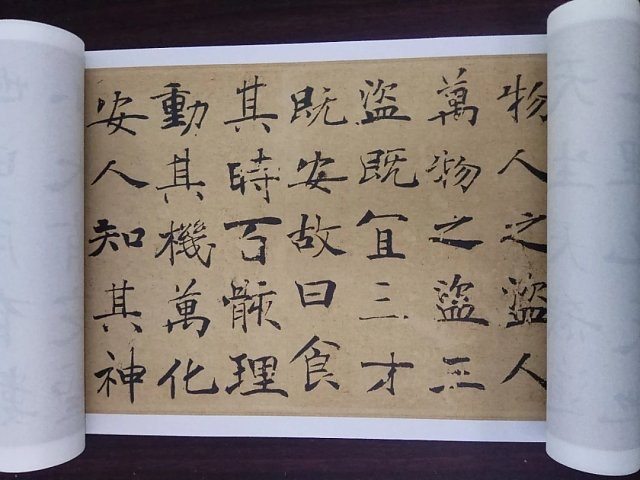 物人之盜人
萬物之盜三
盜既宜三才
既安故曰食
其時百骸理
動其機萬化
安人知其神